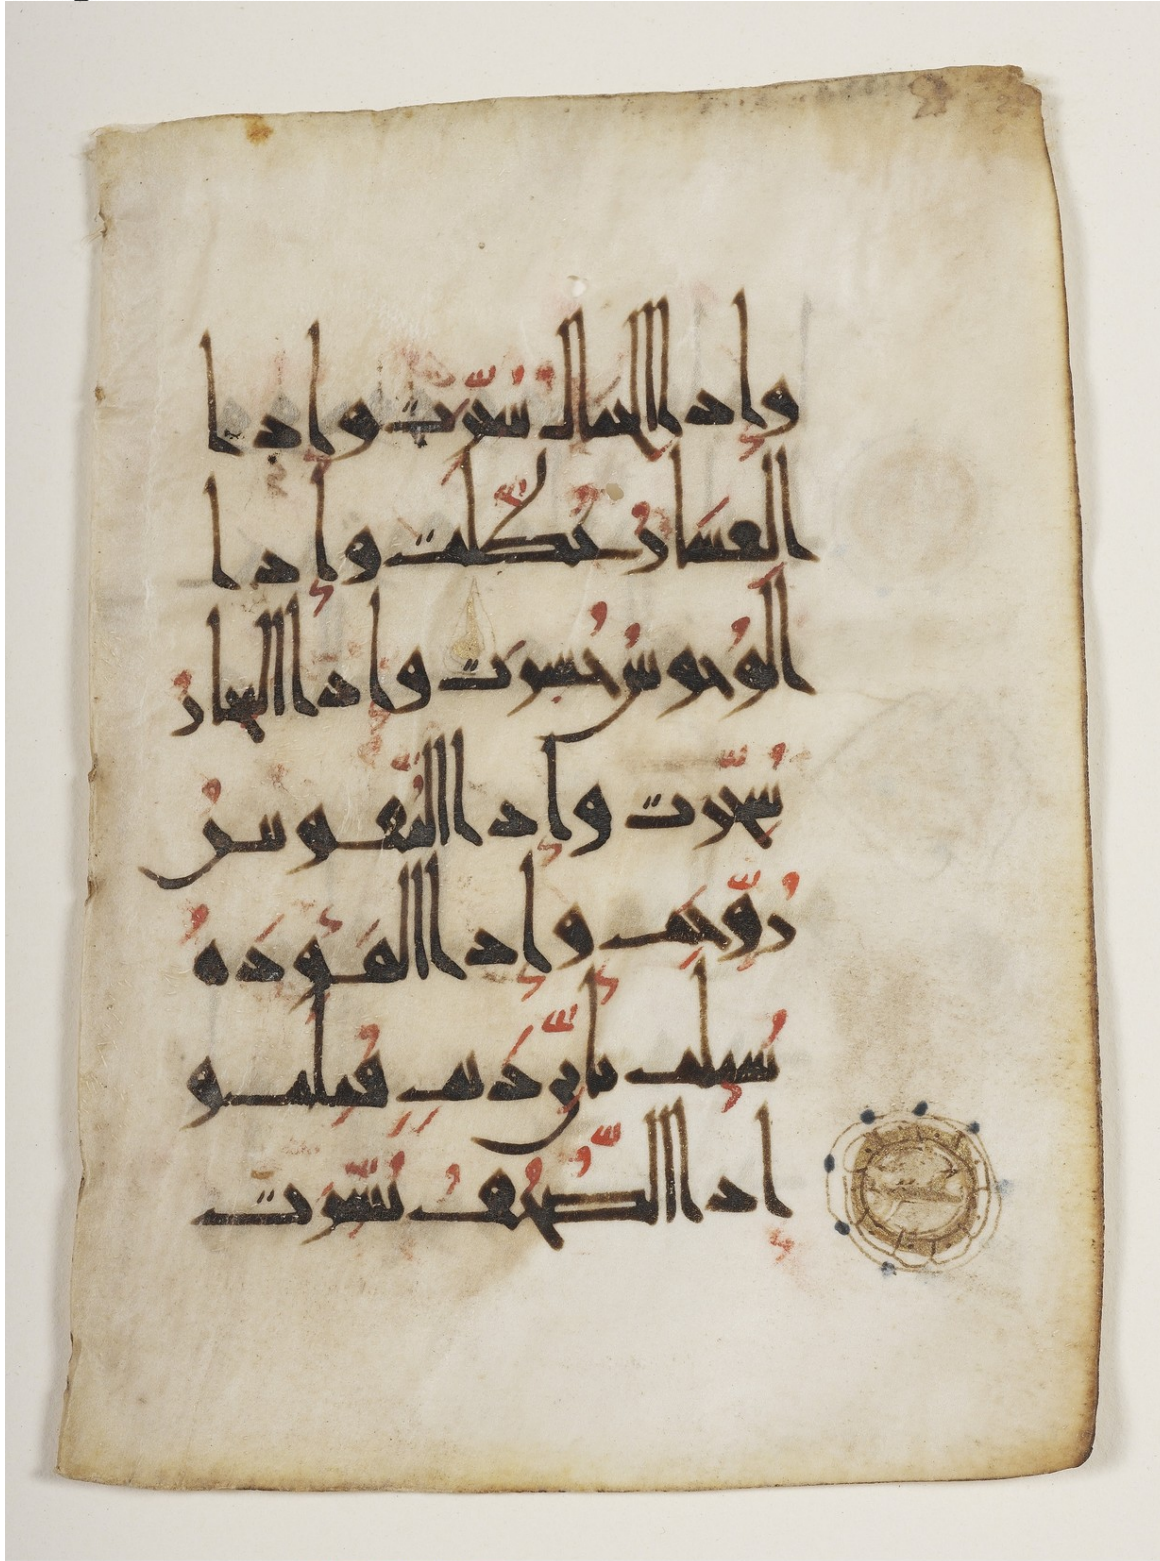 وإذا الجبال سُيِّرَت وإذا ا
لعِشَارُ عُطِّلَت وإذا ا
لوُحُوشُ حُشِرَت وإذا البحارُ
سُجِّرَت وإذا النُّفُوسُ
زُوِّجَت وإذا المَوْءدَةُ
سُئِلَت بِأَيِّ ذَنبٍ قُتِلَت و
إذا الصُّحُفُ نُشِّرَت